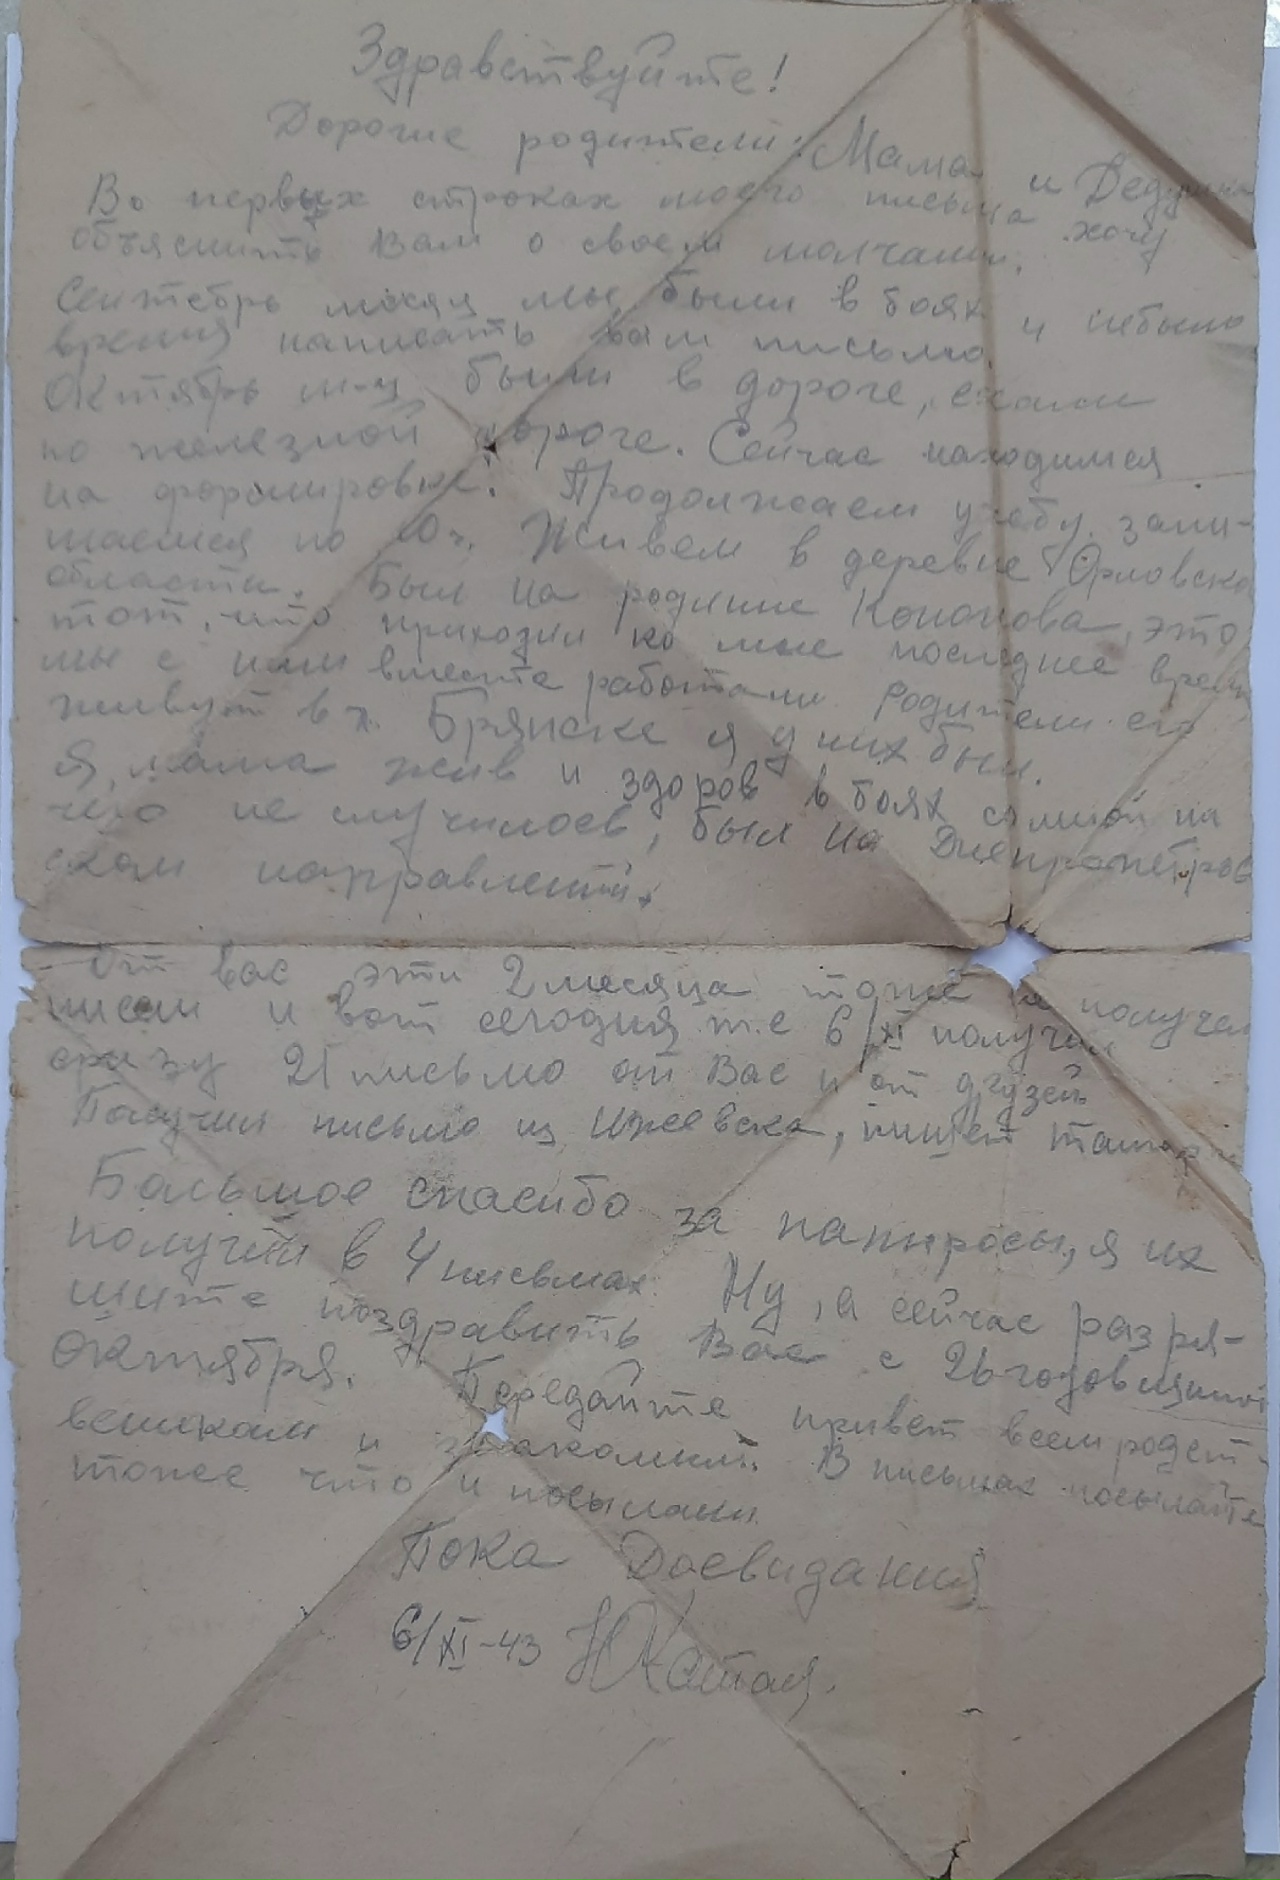 Здравствуйте!
Дорогие родители: Мама и Дедушка
Во первых строках моего письма хочу
объяснить Вам о своем молчании.
Сентябрь месяц мы были в боях и небыло
время написать вам письмо.
Октябрь м-ц были в дороге, ехали
по железной дороге. Сейчас находимся
на формировке. Продолжаем учебу, зани-
маемся по 10 ч. Живем в деревне Орловско
области. Был на родине Кононова, это
тот, что приходил ко мне последнее время
мы с ним вместе работали Родители его
живут в г. Брянске я у них был.
Я, мама жив и здоров в боях сомной ни
чего не случилось, был на Днепропетров
ском направлении.
От вас эти 2 месяца тоже не получал
писем и вот сегодня т.е 6/XI получил
сразу 21 письмо от Вас и от друзей
Получил письмо из Ижевска, пишет
Большое спасибо за папиросы, я их
получил в 4 письмах. Ну, а сейчас разре-
шите поздравить Вас с 26 годовщиной
Октября. Передайте привет всем родст-
веникам и знакомым. В письмах посылайте
тоже что и посылали
Пока Досвидания
6/XI-43